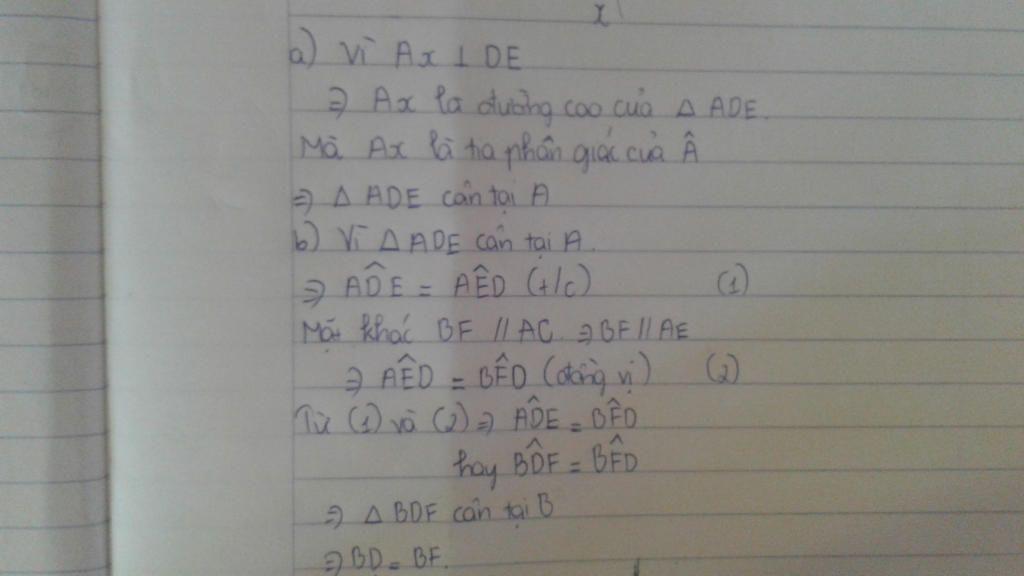 x
a) Vì Ax ⊥ DE
⇒ Ax là đường cao của △ ADE.
Mà Ax là tia phân giác của Â
⇒ △ ADE cân tại A
b) Vì △ ADE cân tại A.
⇒ AD̂E = AÊD (t/c) (1)
Mặt khác BF // AC ⇒ BF // AE
⇒ AÊD = BF̂D (đồng vị) (2)
Từ (1) và (2) ⇒ AD̂E = BF̂D
hay BD̂F = BF̂D
⇒ △ BDF cân tại B
⇒ BD = BF.